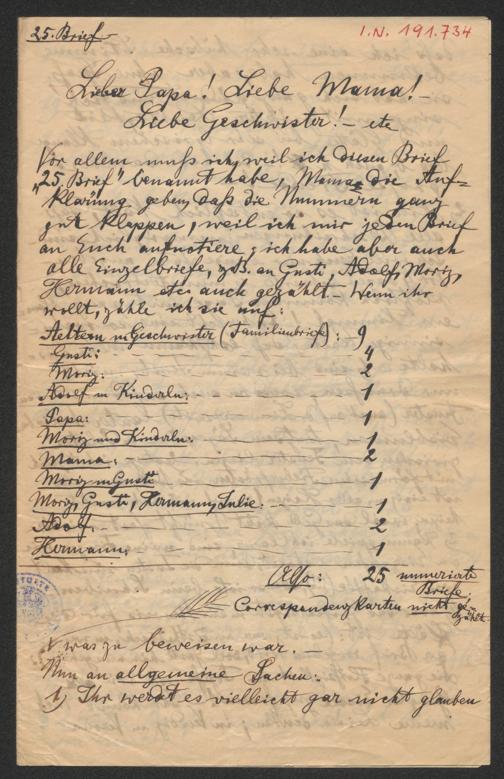 25. Brief
I.N. 191.734
Lieber Papa! Liebe Mama!—
Liebe Geschwister!— etc
Vor allem muß ich, weil ich diesen Brief
„25. Brief" benannt habe, Mama die Auf-
klärung geben, daß die Nummern ganz
gut klappen, weil ich mir jeden Brief
an Euch aufnotiere; ich habe aber auch
alle Einzelbriefe, z.B. an Gusti, Adolf, Moriz,
Hermann etc. auch gezählt. Wenn ihr
wollt, zähle ich sie auf:
Aeltern u Geschwister (Familienbriefe): — 9
Gusti: 4
Moriz: 2
Adolf u Kinderln: 1
Papa: 1
Moriz und Kinderln: 1
Mama: 2
Moriz u Gusti 1
Moriz, Gusti, Hermann, Julie: 1
Adolf: 2
Hermann: 1
Also: 25 numerierte
Briefe,
Correspondenzkarten nicht ge-
zählt.
was zu beweisen war. —
Nun an allgemeine Sachen:
1) Ihr werdet es vielleicht gar nicht glauben